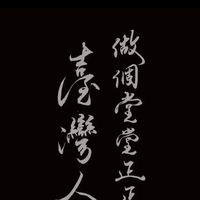 做個堂堂正正
臺灣人